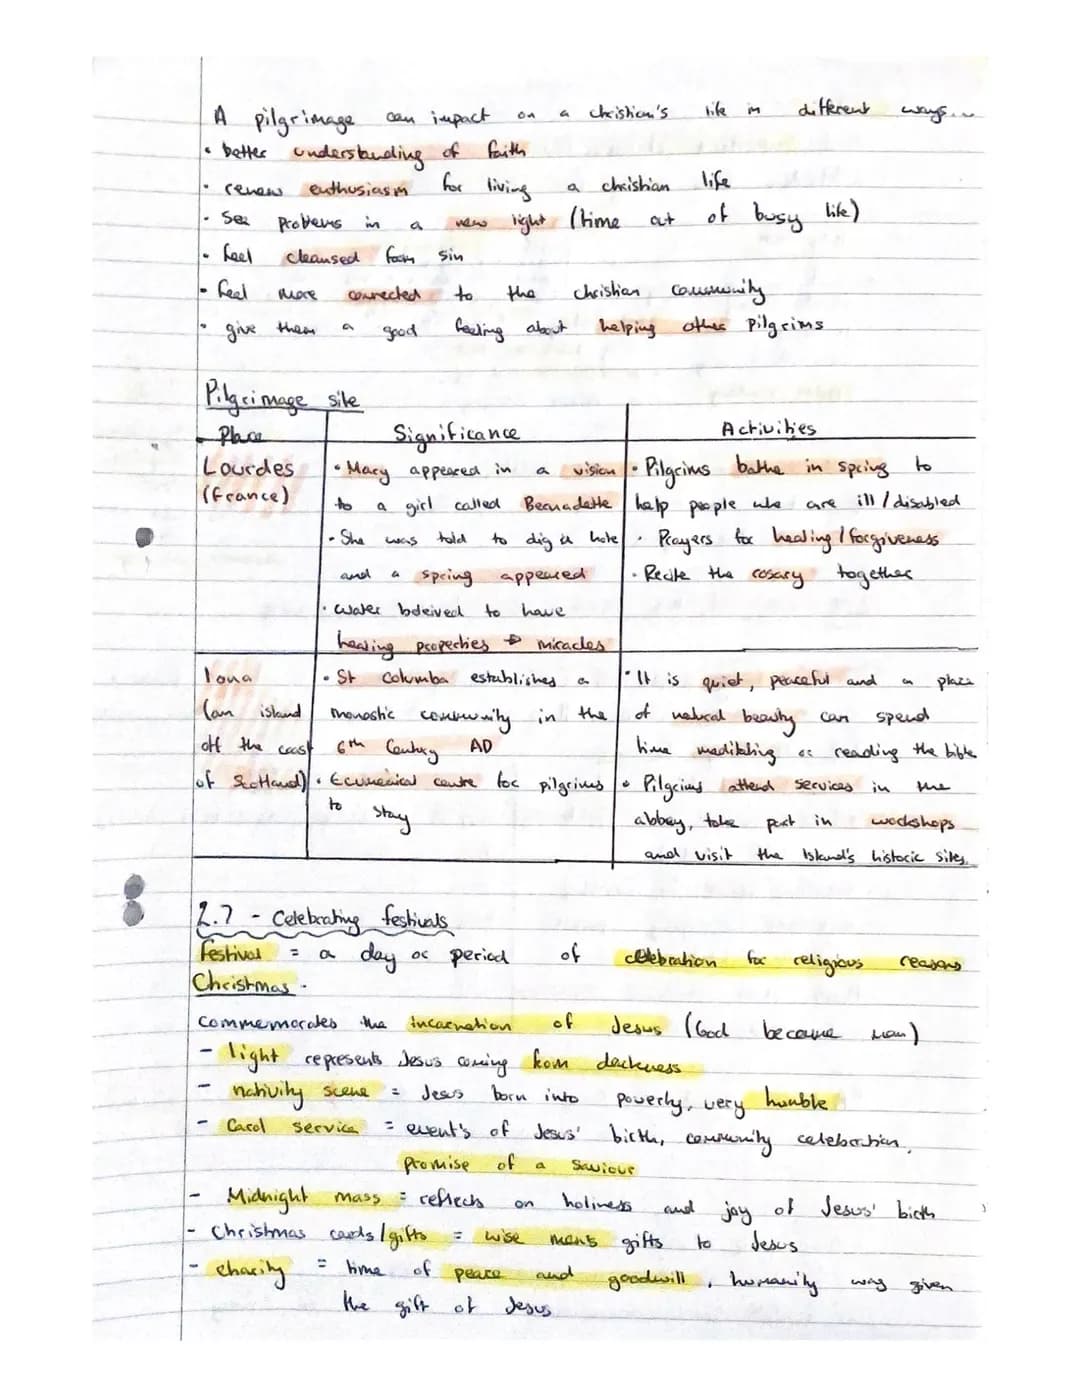 A pilgrimage can impact on a christian's life in different ways...
• better understanding of faith
• renew enthusiasm for living a christian life
• See problems in a new light (time out of busy life)
• feel cleansed from sin
• feel more connected to the christian community
• give them a good feeling about helping other pilgrims
Pilgrimage site
Place
Significance
Activities
Lourdes
(France)
• Mary appeared in a vision
to a girl called Bernadette
• She was told to dig a hole
and a spring appeared
• water beleived to have
healing properties → miracles
• Pilgrims bathe in spring to
help people who are ill / disabled
• Prayers for healing / forgiveness
• Recite the rosary together
Iona
(an island
off the coast
of Scotland)
• St Columba establishes a
monastic community in the
6th Century AD
• Ecumenical centre for pilgrims
to stay
• It is quiet, peaceful and a place
of natural beauty can spend
time meditating or reading the bible
• Pilgrims attend services in the
abbey, take part in workshops
and visit the Island's historic sites.
2.7 - Celebrating festivals
festival = a day or period of celebration for religious reasons
Christmas -
commemorates the incarnation of Jesus (God became man)
- light represents Jesus coming from darkness
- nativity scene = Jesus born into poverty, very humble
- Carol service = event's of Jesus' birth, community celebration,
promise of a Saviour
- Midnight mass = reflects on holiness and joy of Jesus' birth
- Christmas cards/gifts = wise men's gifts to Jesus
- charity = time of peace and goodwill, humanity was given
the gift of Jesus